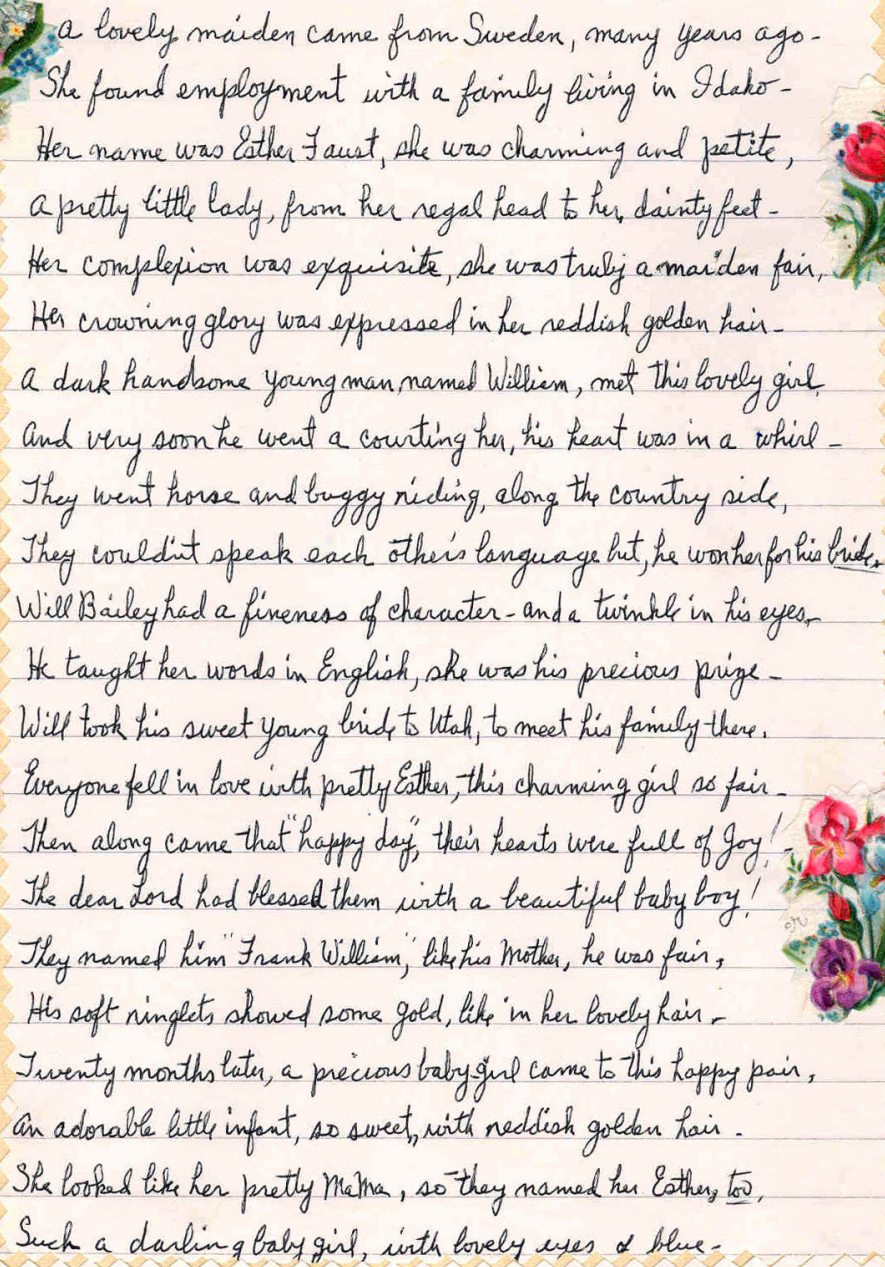 A lovely maiden came from Sweden, many years ago-
She found employment with a family living in Idaho-
Her name was Esther Faust, she was charming and petite,
A pretty little lady, from her regal head to her, dainty feet-
Her complexion was exquisite, she was truly a maiden fair,
Her crowning glory was expressed in her reddish golden hair-
A dark handsome young man, named William, met this lovely girl,
And very soon he went a courting her, his heart was in a whirl-
They went horse and buggy riding, along the country side,
They could'nt speak each other's language but, he won her for his bride.
Will Bailey had a fineness of character - and a twinkle in his eyes,
He taught her words in English, she was his precious prize-
Will took his sweet young bride to Utah, to meet his family there.
Everyone fell in love with pretty Esther, this charming girl so fair-
Then along came that "happy day", their hearts were full of Joy!-
The dear Lord had blessed them with a beautiful baby boy!
They named him "Frank William," like his Mother, he was fair,
His soft ringlets showed some gold, like in her lovely hair-
Twenty months later, a precious baby girl came to this happy pair,
An adorable little infant, so sweet, with reddish golden hair-
She looked like her pretty MaMa, so they named her Esther, too,
Such a darling baby girl, with lovely eyes of blue-
or